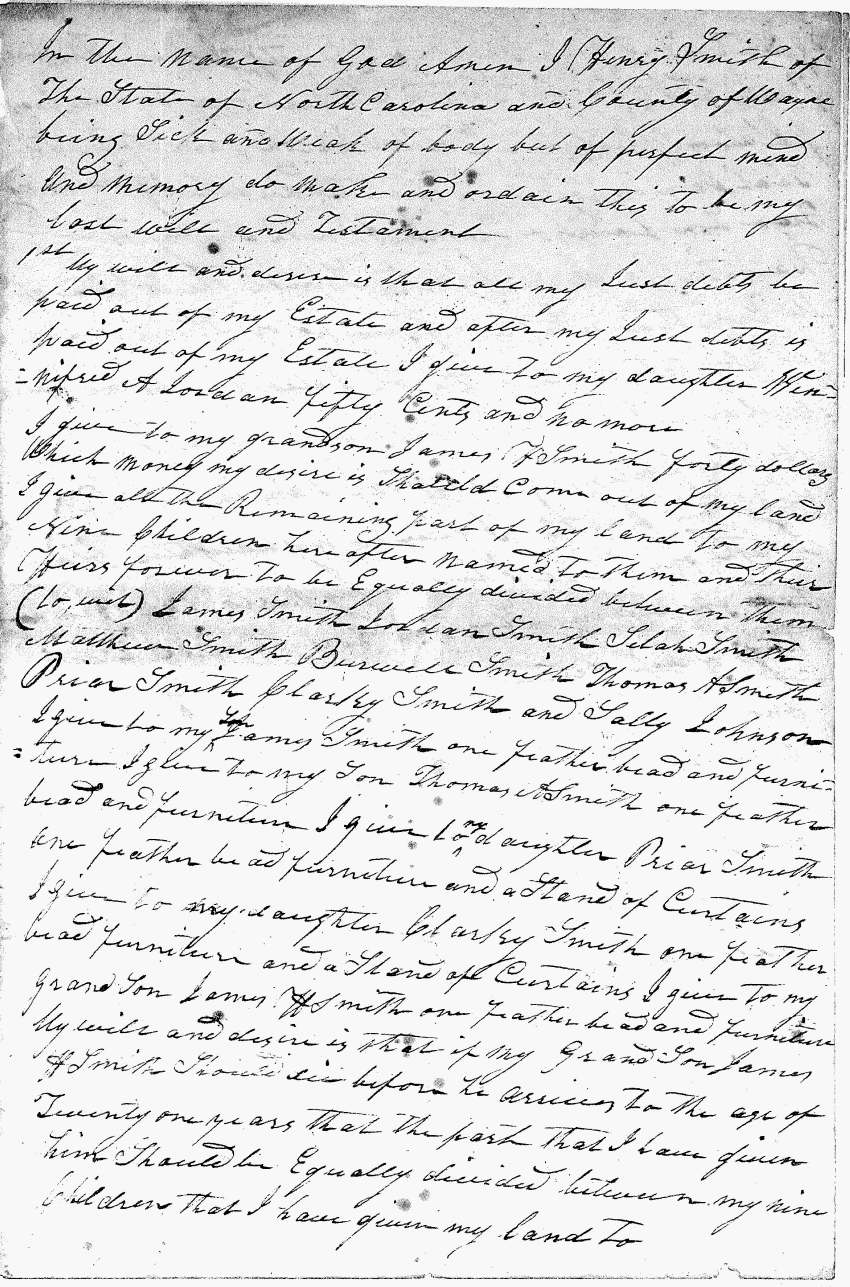 In the name of God Amen I Henry Smith of
The State of North Carolina and County of Wayne
being Sick and Weak of body but of perfect mind
and memory do make and ordain this to be my
last will and Testament
1st My will and desire is that all my Just debts be
paid out of my Estate and after my Just debts is
paid out of my Estate I give to my daughter Win=
=nifred A Jordan fifty Cents and no more
I give to my grandson James H Smith forty dollars
Which money my desire is Should Come out of my land
I give all the Remaining part of my land to my
Nine Children here after Named to them and their
Heirs forever to be Equally divided between them
(to, wit) James Smith Jordan Smith Selah Smith
Matthew Smith Burwell Smith Thomas A Smith
Priar Smith Clarky Smith and Sally Johnson
I give to my Son James Smith one feather bead and furni=
=ture I give to my Son Thomas A Smith one feather
bead and furniture I give to my daughter Priar Smith
one feather bead furniture and a Stand of Curtains
I give to my daughter Clarky Smith one feather
bead furniture and a Stand of Curtains I give to my
Grand Son James H Smith one feather bead and furniture
My will and desire is that if my Grand Son James
H Smith Should die before he arrives to the age of
Twenty one years that the part that I have given
him Should be Equally divided between my nine
Children that I have given my land to